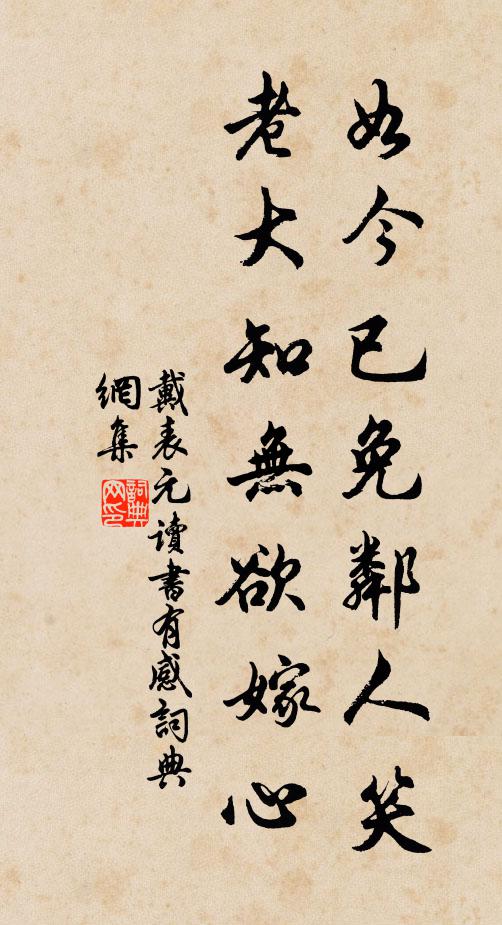 如今已免鄰人笑
老大知無欲嫁心
戴表元讀書有感詞典
網集
詞典
网印